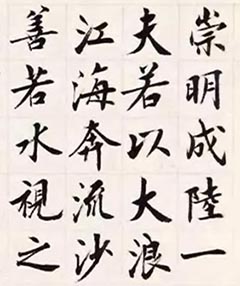 崇明成陸一
夫若以大浪
江海奔流沙
善若水視之